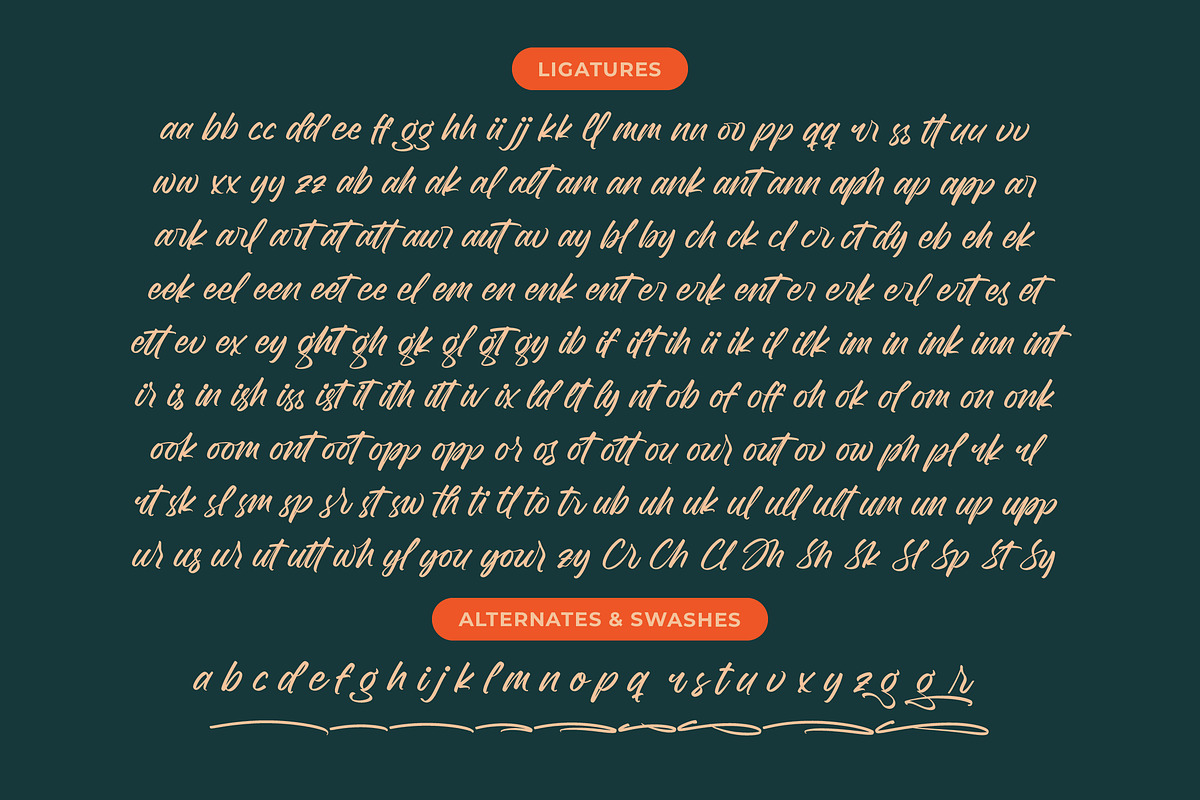 LIGATURES
aa bb cc dd ee ff gg hh ii jj kk ll mm nn oo pp qq rr ss tt uu vv
ww xx yy zz ab ah ak al alt am an ank ant ann aph ap app ar
ark arl art at att aur aut av ay bl by ch ck cl cr ct dy eb eh ek
eek eel een eet ee el em en enk ent er erk ent er erk erl ert es et
ett ev ex ey ght gh gk gl gt gy ib if ift ih ii ik il ilk im in ink inn int
ir is in ish iss ist it ith itt iv ix ld lt ly nt ob of off oh ok ol om on onk
ook oom ont oot opp opp or os ot ott ou our out ov ow ph pl rk rl
rt sk sl sm sp sr st sw th ti tl to tr ub uh uk ul ull ult um un up upp
ur us ur ut utt wh yl you your zy Cr Ch Cl Th Sh Sk Sl Sp St Sy
ALTERNATES & SWASHES
a b c d e f g h i j k l m n o p q r s t u v x y z g g r